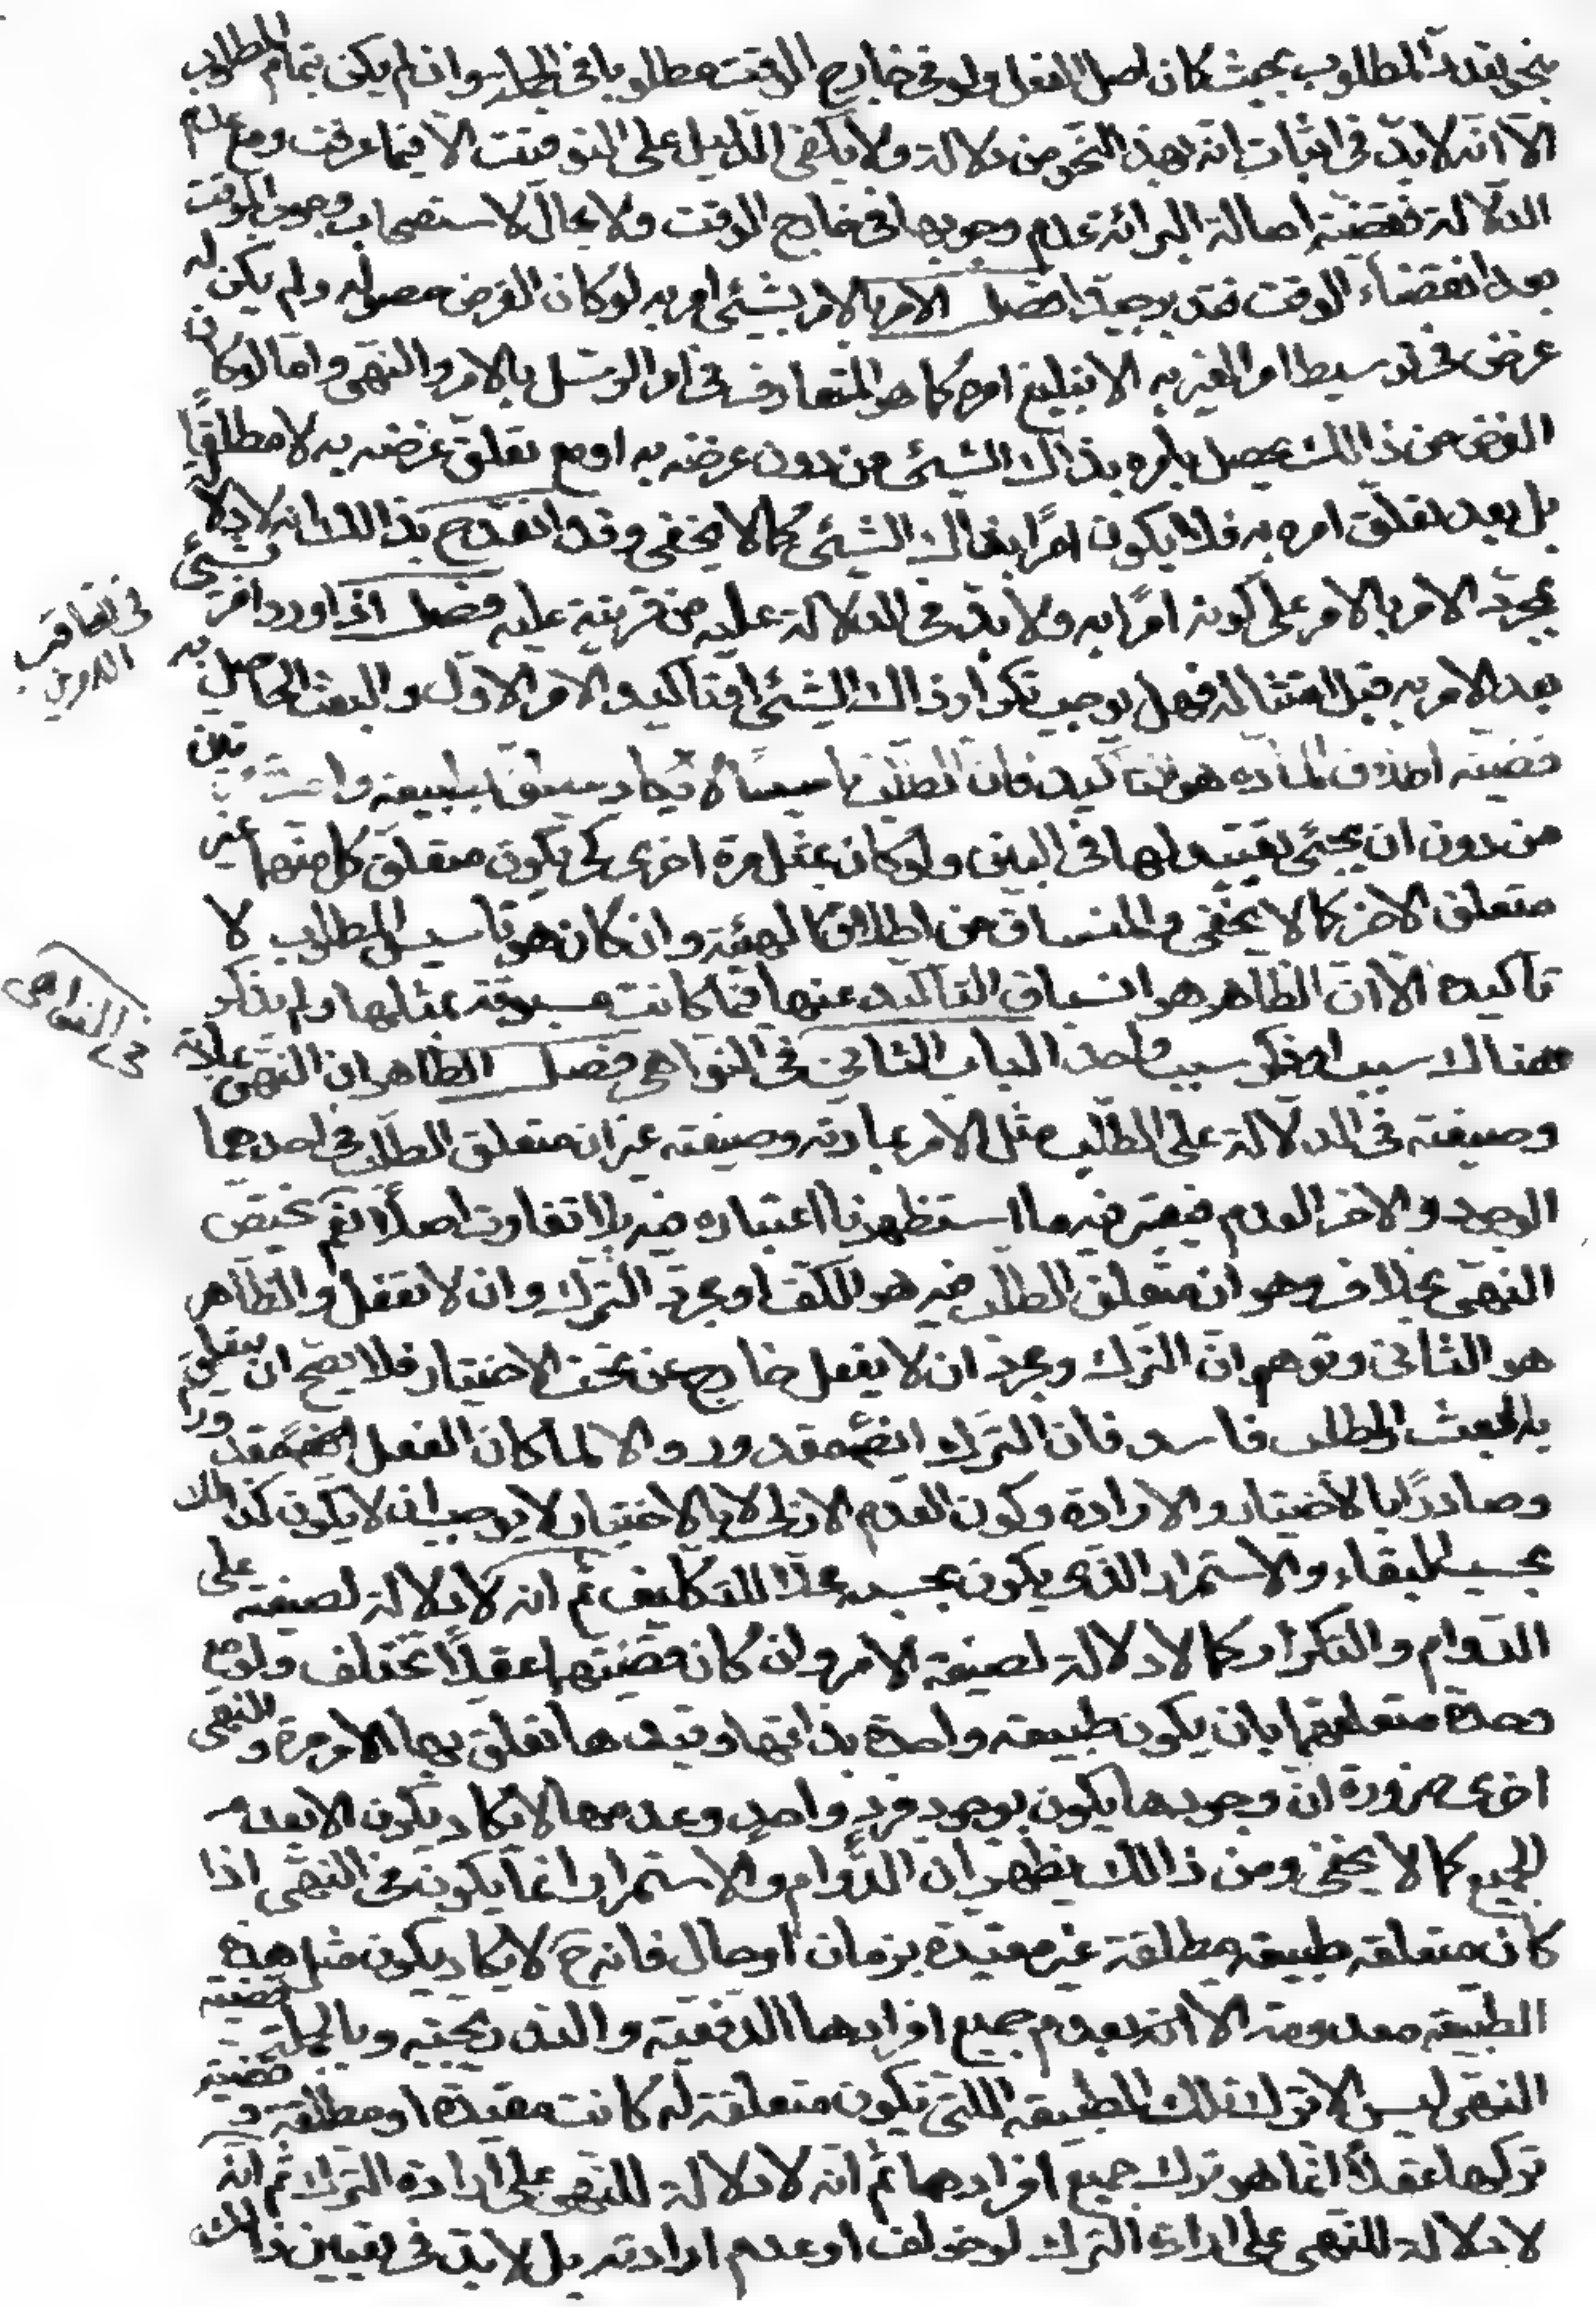 بنحو تعدد المطلوب بحيث كان اصل الفعل ولو فى خارج الوقت مطلوبا فى الجملة وان لم يكن بتمام المطلوب
الّا انّه لابدّ فى اثبات انّه بهذا النّحو من دلالة ولا يكفى الدّليل على التوقيت الّا فيما عرفت ومع عدم
الدّلالة فقضيّة اصالة البرائة عدم وجوبها فى خارج الوقت ولا مجال لاستصحاب وجوب الموقت
بعد انقضاء الوقت فتدبر جيدا فصل الامر بالامر بشيئ امر به لو كان الغرض حصوله ولم يكن له
غرض فى توسيط امر الغير به الا تبليغ امره كما هو المتعارف فى امر الرسل بالامر والنّهى وامّا لو كان
الغرض من ذالك يحصل بامره بذاك الشيئ من دون غرضه به او مع تعلّق غرضه به لا مطلقًا
بل بعد تعلّق امره به فلا يكون امرًا بذاك الشيئ كما لا يخفى وقد انقدح بذالك انه لا دلالة
بمجرّد الامر بالامر على كونه امرًا به ولا بدّ فى الدلالة عليه من قرينة عليه فصل اذا ورد امر بشيئ
فى تعاقب الامرين
بعد الامر به قبل امتثاله فهل يوجب تكرار ذاك الشيئ او تاكيد الامر الاول والبعث الحاصل به
قضية اطلاق المادة هو التاكيد فان الطلب تاسيسًا لا يكاد يتعلق بطبيعة واحدة مرتين
من دون ان يجيئ تقييد لها فى البين ولو كان بمثل مرة اخرى كى يكون متعلق كل منهما غير
متعلق الاخر كما لا يخفى والمنساق من اطلاق الهيئة وان كان هو تاسيس الطلب لا
تاكيده الّا انّ الظّاهر هو انسباق التّاكيد عنها فيما كانت مسبوقة بمثلها ولم يذكر
فى النواهى
هناك سبب او ذكر سبب واحد الباب الثانى فى النّواهى فصل الظاهر ان النّهى بمادّته
وصيغته فى الدلالة على الطّلب مثل الامر بمادته وصيغته غير ان متعلق الطلب فى احدهما
الوجود والاخر العدم فيعتبر فيه ما استظهرنا اعتباره فيه بلا تفاوت اصلًا نعم يختص
النهى بخلاف وهو ان متعلق الطلب فيه هو الكفّ او مجرد التّرك وان لا تفعل والظّاهر
هو الثانى وتوهم انّ الترك ومجرد ان لا يفعل خارج عن تحت الاختيار فلا يصحّ ان يتعلق
به البعث والطلب فاسد فان الترك ايضً مقدور والا لما كان الفعل ايضً مقدورا
وصادرًا بالاختيار والارادة وكون العدم الازلى لا بالاختيار لا يوجب ان لا يكون كذالك
بحسب البقاء والاستمرار الذى يكون بحسبه محلّا للتكليف ثم انه لا دلالة لصيغته على
الدّوام والتكرار كما لا دلالة لصيغة الامر وان كان قضيّتهما عقلًا تختلف ولو مع
وحدة متعلقهما بان يكون طبيعة واحدة بذاتها وقيدها تعلق بها الامر مرة والنهى
اخرى ضرورة انّ وجودها يكون بوجود فرد واحد وعدمها لا يكاد يكون الا بعدم
الجميع كما لا يخفى ومن ذالك يظهر ان الدّوام والاستمرار انما يكون فى النّهى اذا
كان متعلقه طبيعة مطلقة غير مقيدة بزمان او حال فانه ح لا يكاد يكون مثل هذه
الطبيعة معدومة الّا انه بعدم جميع افرادها الدفعية والتدريجيّة وبالجملة قضية
النهى ليس الا ترك تلك الطبيعه اللتى تكون متعلقة له كانت مقيدة او مطلقة وقضية
تركها عقلًا انما هو ترك جميع افرادها ثم انّه لا دلالة للنهى على ارادة التّرك ثم انّه
لا دلالة للنهى على ارادة الترك لو خولف او عدم ارادته بل لا بد فى تعيين ذالك